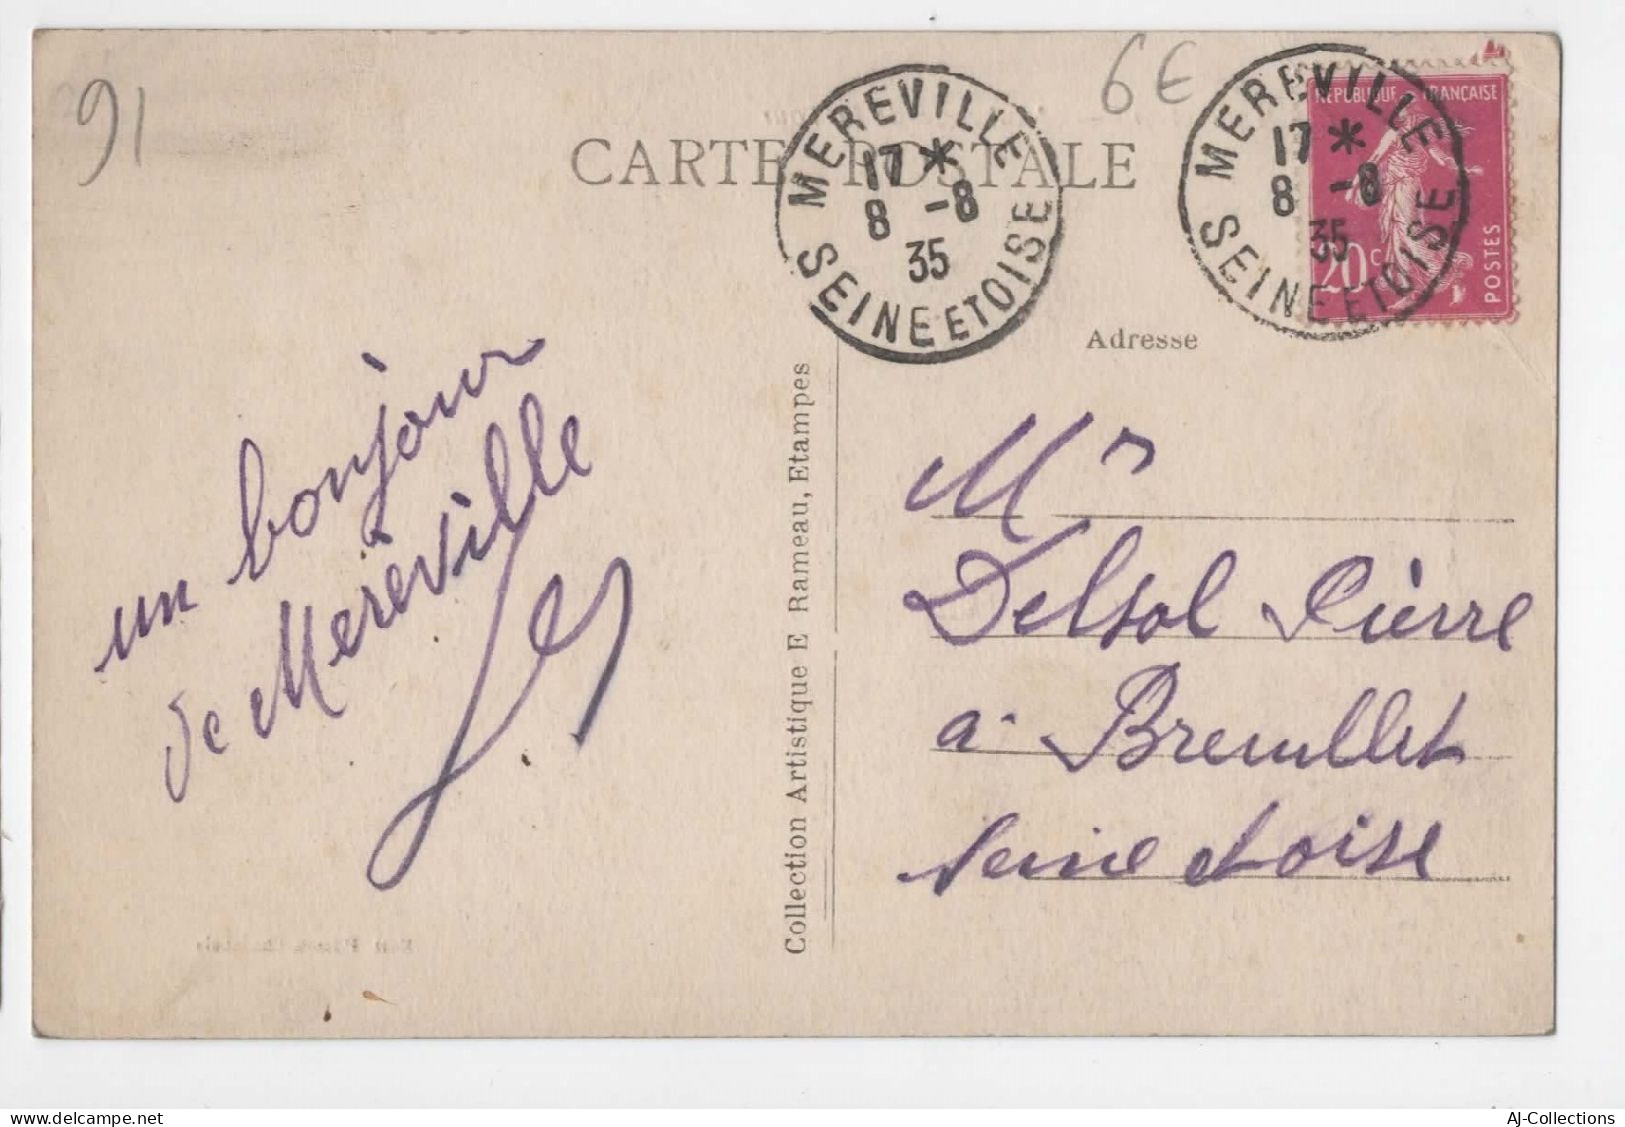 91
6€
CARTE POSTALE
MEREVILLE
17 *
8 -8
35
SEINE ET OISE
MEREVILLE
17 *
8 -8
35
SEINE ET OISE
REPUBLIQUE FRANÇAISE
20c
POSTES
Adresse
un bonjour
de Mereville
Collection Artistique E Rameau, Etampes
Mr
Delsol Pierre
a Breuillet
Seine et oise
AJ-Collections